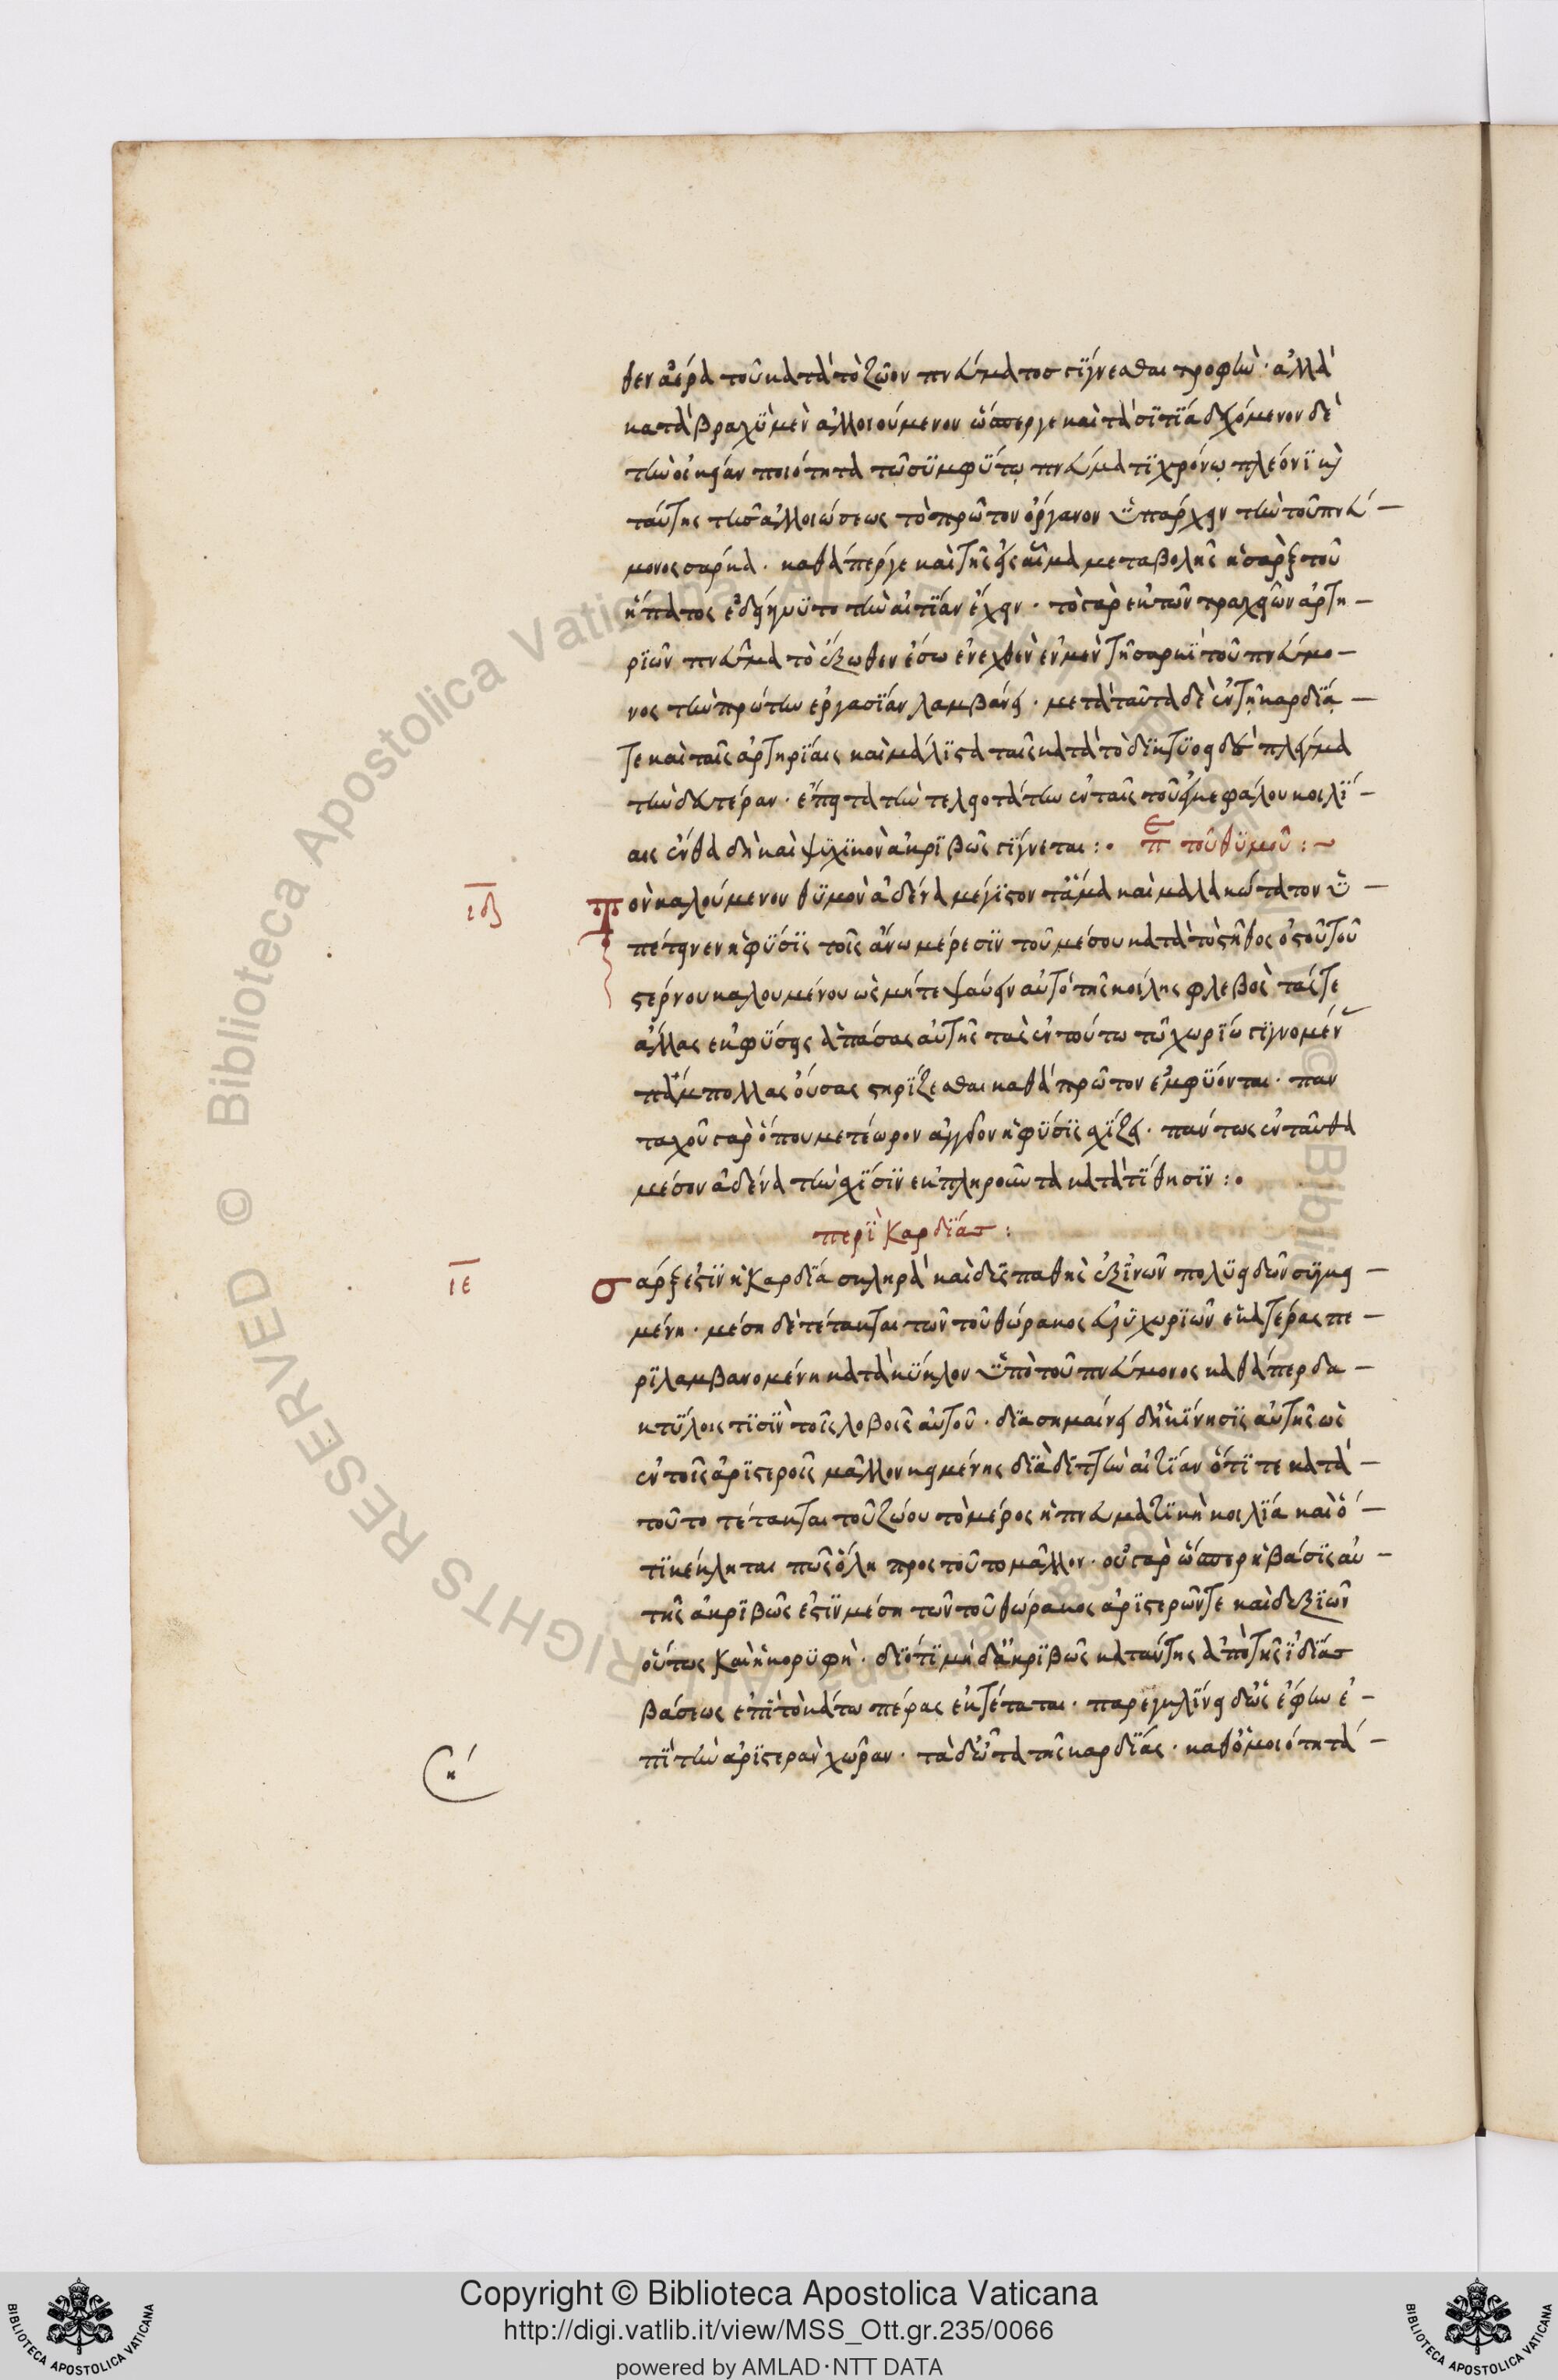 θεν ἀέρα τοῦ κατὰ τὸ ζῶον πνεύματος γΐγνεσθαι τροφὴν· ἀλλὰ
κατὰ βραχὺ μὲν ἀλλοιούμενον ὥσπερ γε καὶ τὰ σϊτΐα δεχόμενον δὲ
τὴν οἰκείαν ποιότητα τῷ σϋμφΰτῳ πνεύματϊ χρόνῳ πλέονϊ καὶ
ταύτης τῆς ἀλλοιώσεως τὸ πρῶτον ὄργανον ὑπάρχειν τὴν τοῦ πνεύ-
μονος σαρκα· καθάπερ γε καὶ τῆς εἰς αἷμα μεταβολῆς ἡ σὰρξ τοῦ
ἥπατος ἐδείκνϋτο τὴν αἰτΐαν ἔχειν· τὸ γὰρ ἐκ τῶν τραχειῶν ἀρτη-
ρϊῶν πνεῦμα τὸ ἔξωθεν ἔσω ἐνεχθὲν ἐν μὲν τῇ σαρκϊ τοῦ πνεύμο-
νος τὴν πρώτην ἐργασΐαν λαμβάνει· μετὰ ταῦτα δὲ ἐν τῇ καρδΐᾳ
τε καὶ ταῖς ἀρτηρΐαις καὶ μάλϊστα ταῖς κατὰ τὸ δϊκτϋοειδὲς πλέγμα
τὴν δευτέραν· ἔπειτα τὴν τελεοτάτην ἐν ταῖς τοῦ ἐγκεφάλου κοιλΐ-
αις ἔνθα δὴ καὶ ψϋχϊκὸν ἀκρϊβῶς γΐγνεται :· περὶ τοῦ θϋμοῦ :~
ιδ
Τὸν καλούμενον θϋμὸν ἀδένα μέγϊστον τ' ἅμα καὶ μαλακώτατον ὑ-
πέτεινεν ἡ φΰσϊς τοῖς ἄνω μέρεσϊν τοῦ μέσου κατὰ τὸ στῆθος ὀστοῦ τοῦ
στέρνου καλουμένου ὡς μήτε ψαύειν αὐτὸ τῆς κοίλης φλεβὸς τάς τε
ἄλλας ἐκφΰσεις ἁπάσας αὐτῆς τὰς ἐν τούτω τῶ χωρΐω γϊγνομέν
παμπολλας οὔσας στηρΐζεσθαι καθὰ πρῶτον ἐμφΰονται· παν
ταχοῦ γὰρ ὅπου μετέωρον ἀγγεῖον ἡ φΰσϊς σχΐζει· πάντως ἐνταῦθα
μέσον ἀδένα τὴν σχΐσϊν ἐκπληροῦντα κατατΐθησϊν :·
περὶ καρδΐας :
ιε
Σάρξ ἐστϊν ἡ καρδΐα σκληρὰ καὶ δϋσπαθὴς ἐξ ἰνῶν πολϋειδῶν σϋγκει-
μένη· μέση δὲ τέτακται τῶν τοῦ θώρακος εὐρϋχωρϊῶν ἑκατέρας πε-
ρϊλαμβανομένη κατὰ κΰκλον ὑπὸ τοῦ πνεύμονος καθάπερ δα-
κτΰλοις τϊσὶν τοῖς λοβοῖς αὐτοῦ· δϊασημαίνει δ' ἡ κΐνησϊς αὐτῆς ὡς
ἐν τοῖς ἀρϊστεροῖς μᾶλλον κειμένης δϊὰ δϊττὴν αἰτΐαν ὅτϊ τε κατὰ-
τοῦτο τέτακται τοῦ ζώου τὸ μέρος ἡ πνευματϊκὴ κοιλΐα καὶ ὅ-
τϊ κέκλιται πῶς ὅλη προς τοῦτο μᾶλλον· οὐ γὰρ ὥσπερ ἡ βάσϊς αὐ-
τῆς ἀκρϊβῶς ἐστϊν μέση τῶν τοῦ θώρακος ἀρϊστερῶν τε καὶ δεξϊῶν
οὕτως καὶ ἡ κορϋφὴ· δϊότϊ μηδ' ἀκρϊβῶς κατ' αὐτῆς ἀπὸ τῆς ἰδΐας
βάσεως ἐπὶ τὸ κάτω πέρας ἐκτέταται· παρεγκλΐνει δ' ὡς ἔφην ἐ-
πὶ τὴν ἀρϊστερὰν χῶραν· τὰ δ' ὦτα τῆς καρδΐας· καθ' ὁμοιότητα
κ
Copyright © Biblioteca Apostolica Vaticana
http://digi.vatlib.it/view/MSS_Ott.gr.235/0066
powered by AMLAD·NTT DATA